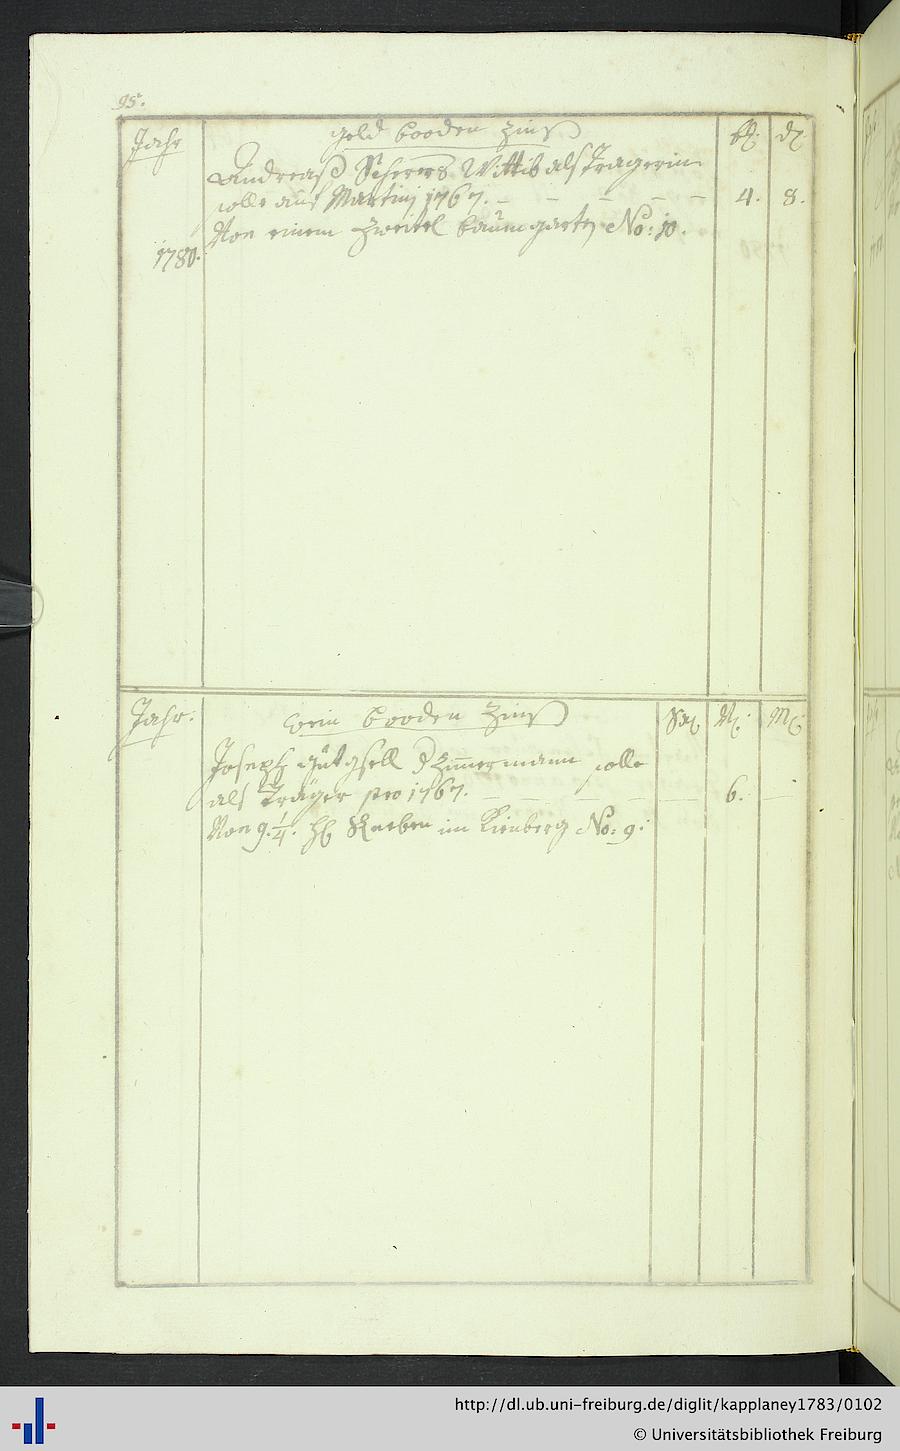 95.
Jahr
geld booden Zinß
ß. d.
Andreaß Scherers Wittib als Tragerin
solle auf Martinj 1767. 4. 8.
Von einem Zweitel baumgarten No: 10.
1780.
Jahr:
wein booden Zinß
M.
Joseph gutgsell d Zimmermann solle
als Träger pro 1767. 6.
Von 9. 1/4. Reeben im Kienberg No: 9:
http://dl.ub.uni-freiburg.de/diglit/kapplaney1783/0102
© Universitätsbibliothek Freiburg